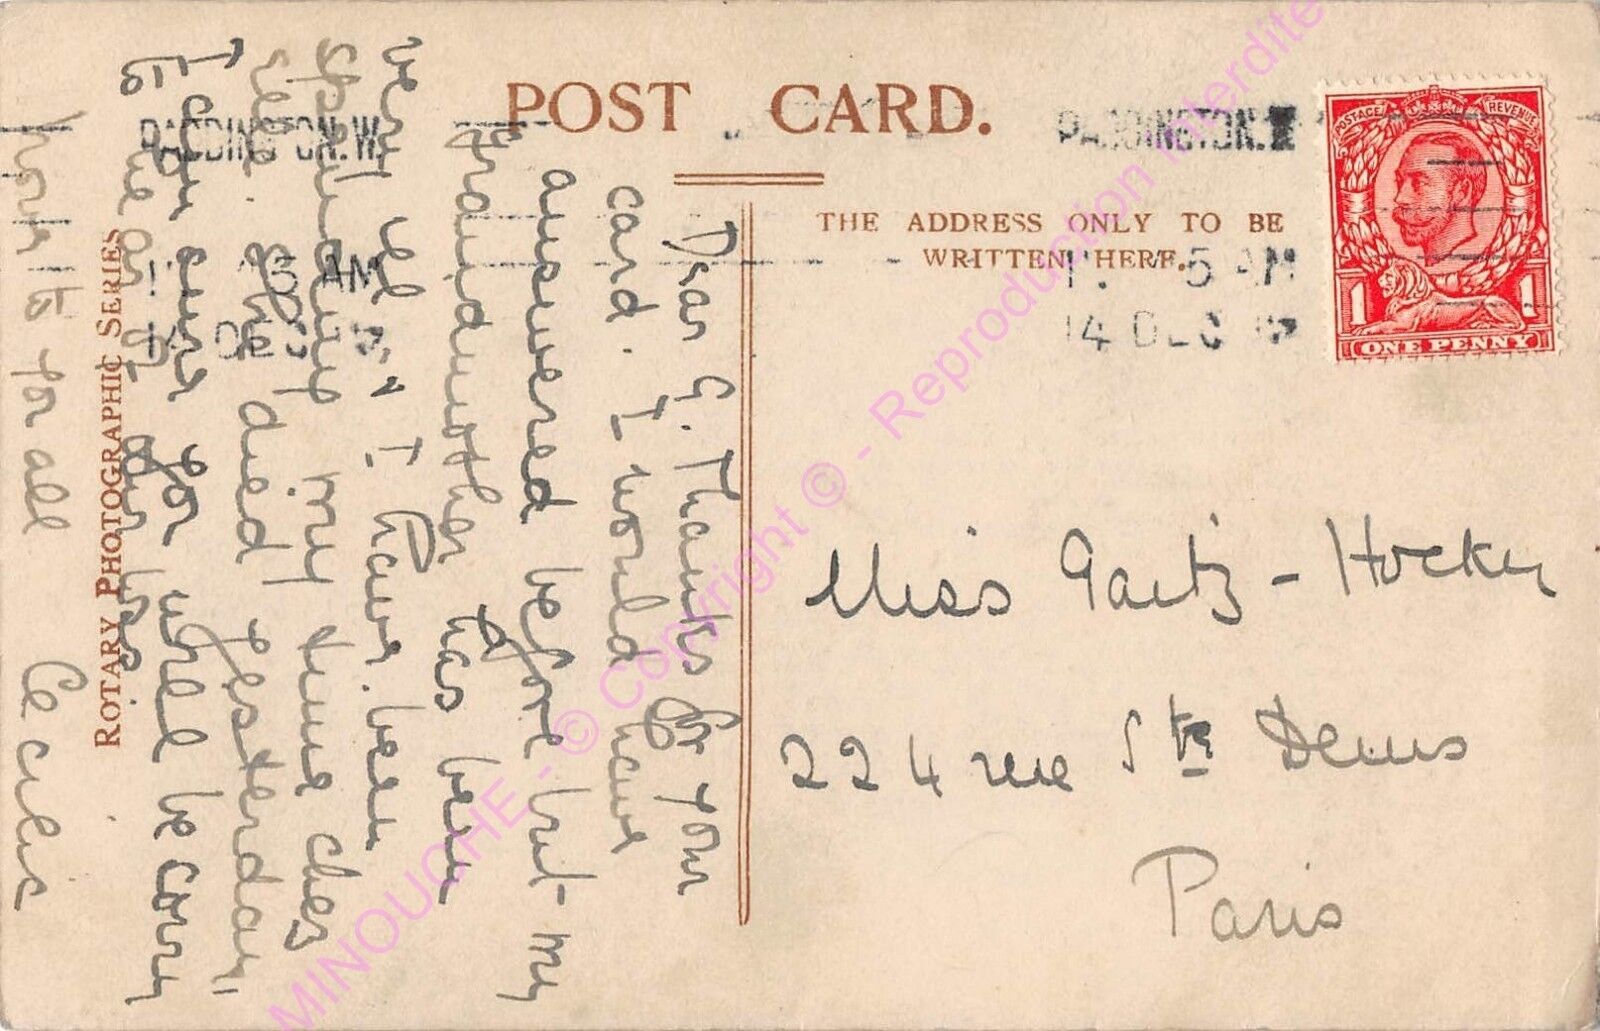 POST CARD.
THE ADDRESS ONLY TO BE
WRITTEN HERE.
PADDINGTON. W.
5 AM
14 DEC 12
POSTAGE REVENUE
1 1
ONE PENNY
Miss Gaitz - Hockey
224 rue Ste Denis
Paris
Dear G. Thanks for your
card. I would have
answered before but my
Grandmother has been
very ill, I have been
spending my time chez
elle. She died yesterday,
I am sure you will be sorry
to hear of our loss
for all
Cecile
ROTARY PHOTOGRAPHIC SERIES
PADDINGTON. W.
AM
14 DEC
MINOUCHE - © Copyright © - Reproduction Interdite